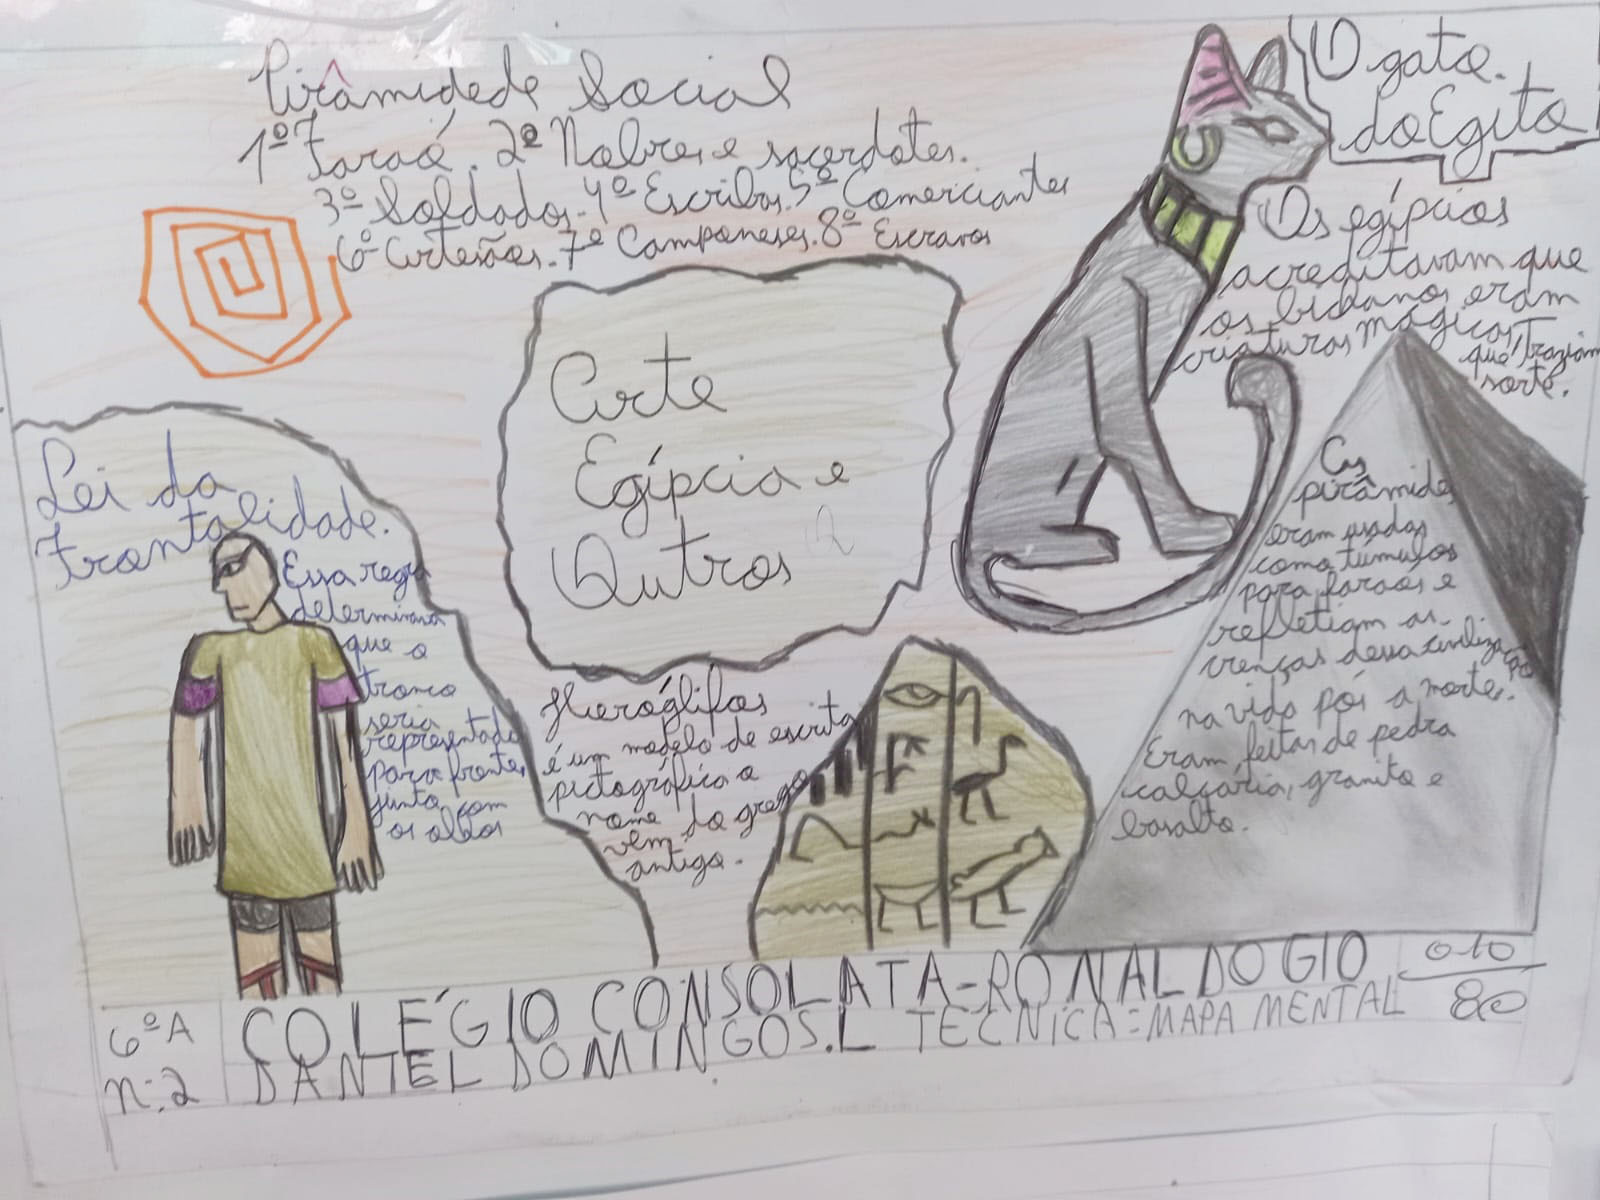 Pirâmidede Social
1º Faraó. 2º Nobres e sacerdotes.
3º Soldados. 4º Escribas. 5º Comerciantes
6º Artesãos. 7º Camponeses. 8º Escravos
O gato.
do Egito
Os egípcios
acreditavam que
os bichanos eram
criaturas mágicas,
que traziam
sorte.
Arte
Egípcia e
Outros
Lei da
Frontalidade.
Essa regra
determinava
que o
tronco
seria
representado
para frente,
junto com
os olhos
Hieróglifos
é um modelo de escrita
pictográfica o
nome vem do grego
antigo.
As
pirâmides
eram usadas
como túmulos
para faraós e
refletiam as
crenças dessa civilização
na vida pós a morte.
Eram feitas de pedra
calcária, granito e
basalto.
6º A
n:2
COLÉGIO CONSOLATA-RONALDO GIO
DANIEL DOMINGOS.L TECNICA:MAPA MENTAL
010
80